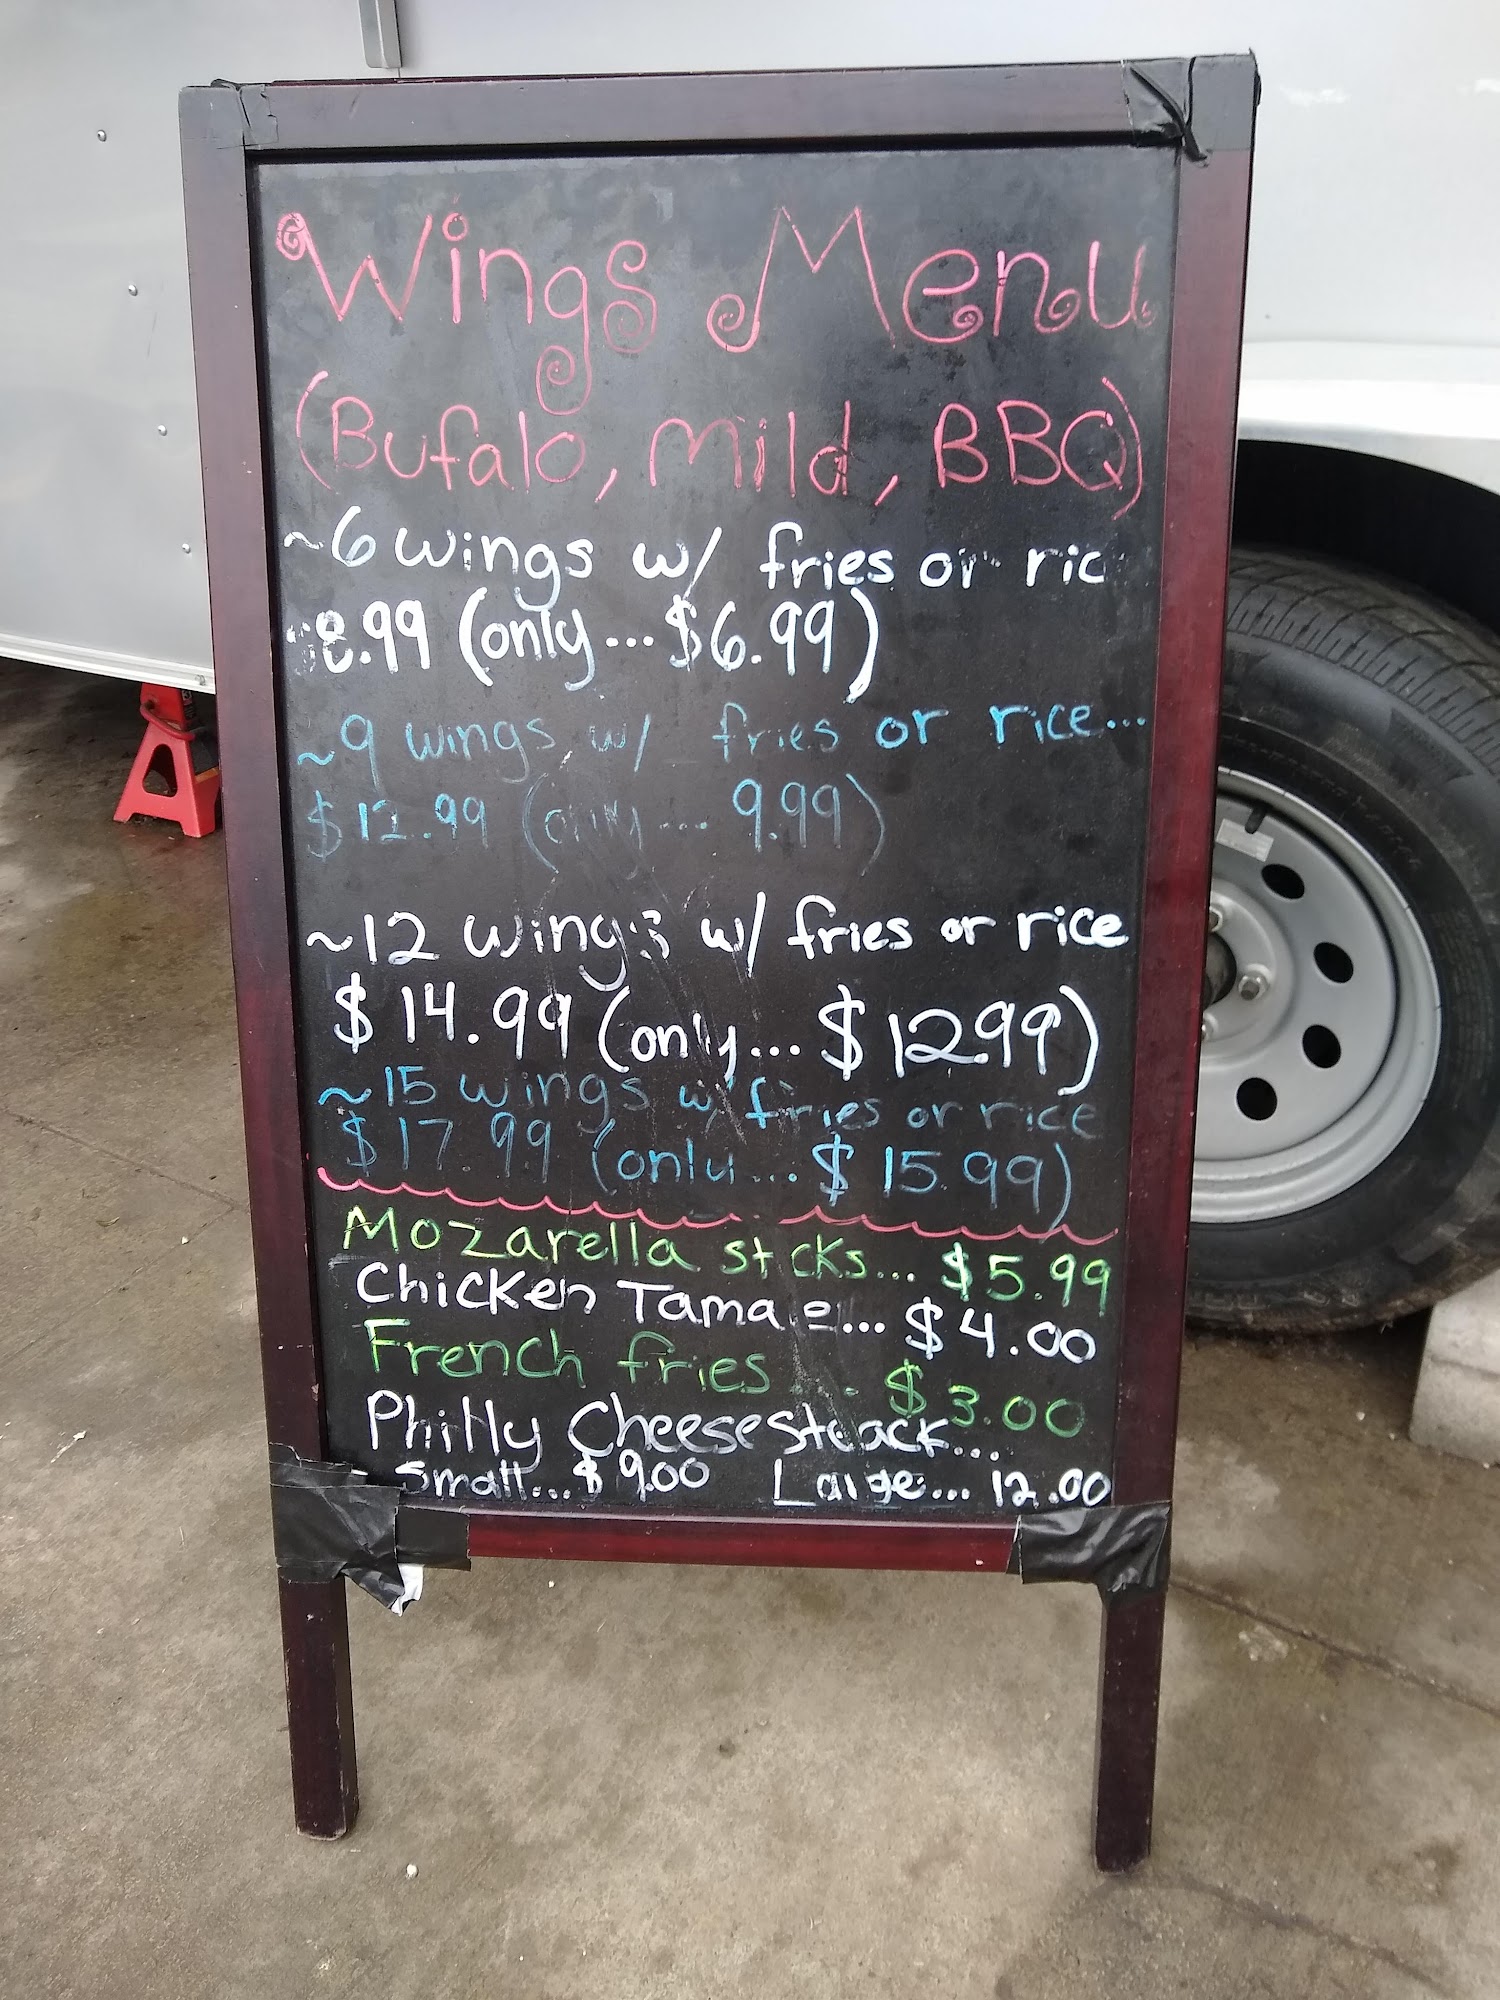 Wings Menu
(Bufalo, Mild, BBQ)
~6 wings w/ fries or ric
$8.99 (only...$6.99)
~9 wings w/ fries or rice...
$12.99 (only... 9.99)
~12 wings w/ fries or rice
$14.99 (only... $12.99)
~15 wings w/ fries or rice
$17.99 (only... $15.99)
Mozarella sticks... $5.99
Chicken Tamale... $4.00
French fries... $3.00
Philly Cheesesteack...
- Small...$9.00 Large... 12.00